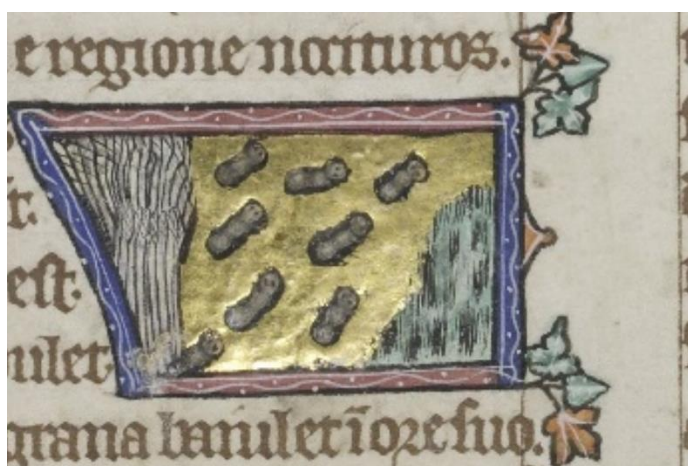 e regione nocituros.
t.
est.
iulet
grana baiulet ī ore suo.